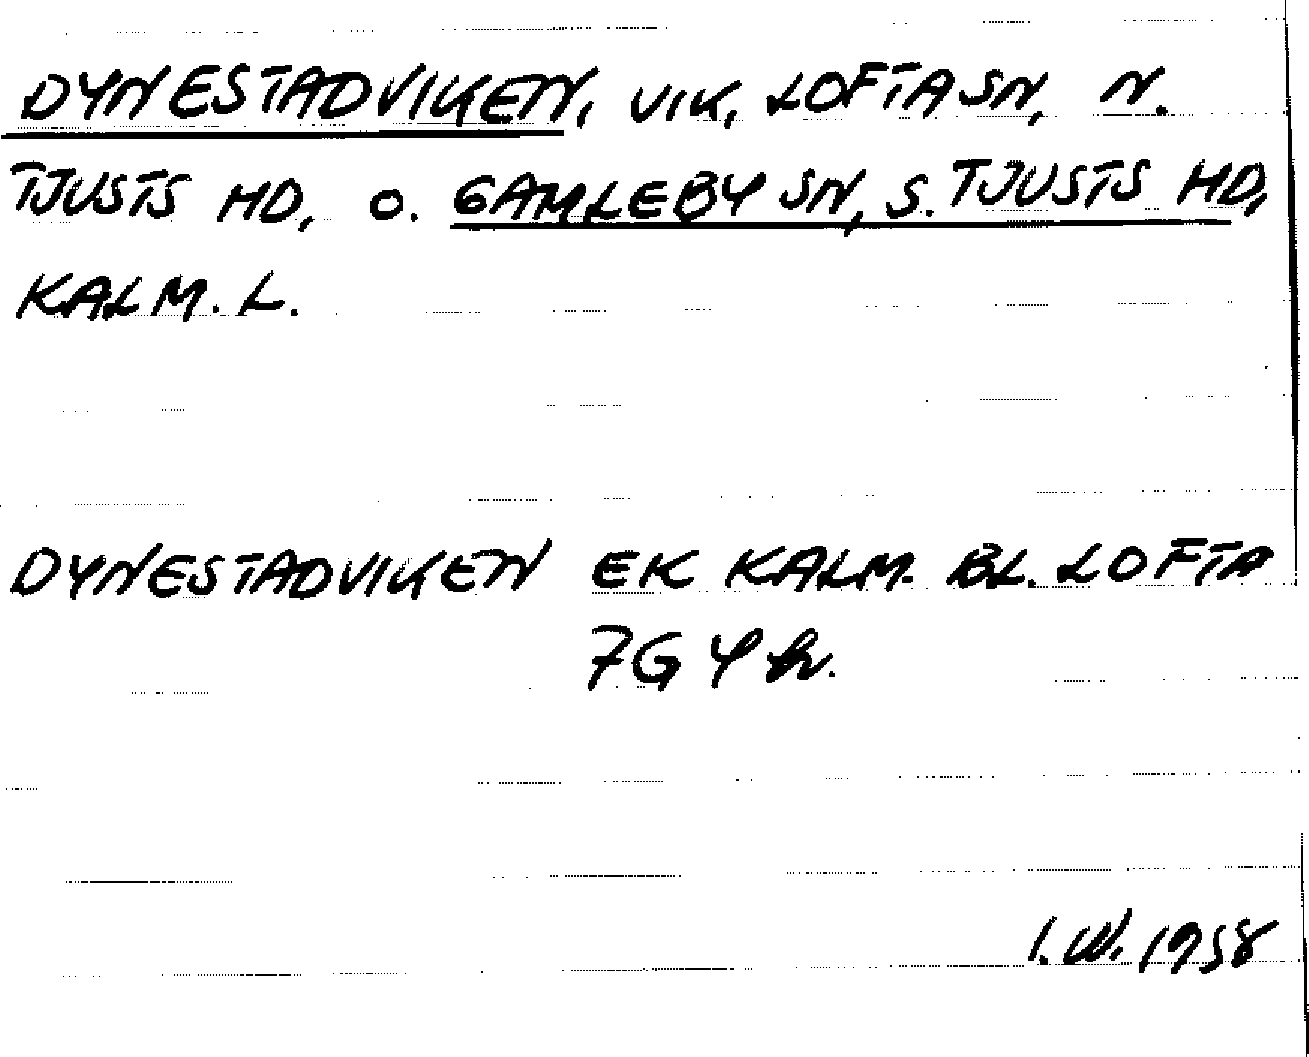 DYNESTADVIKEN, VIK, LOFTA SN, N.
TJUSTS HD, O. GAMLEBY SN, S. TJUSTS HD,
KALM. L.
DYNESTADVIKEN EK KALM. BL. LOFTA
7G 4h.
I.W. 1958